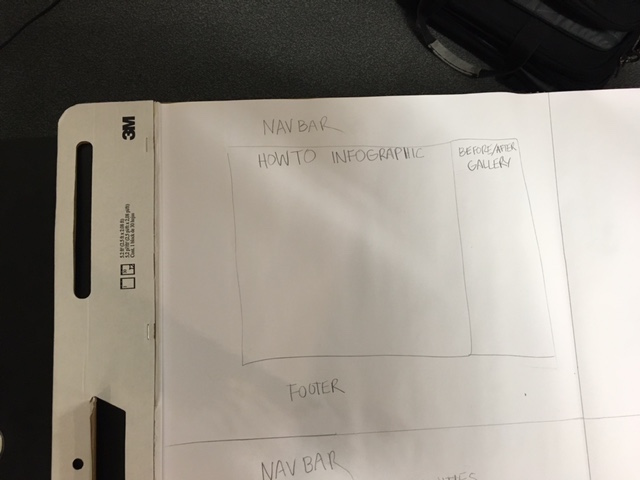 NAVBAR
HOW TO INFOGRAPHIC
BEFORE/AFTER
GALLERY
FOOTER
NAVBAR
3M